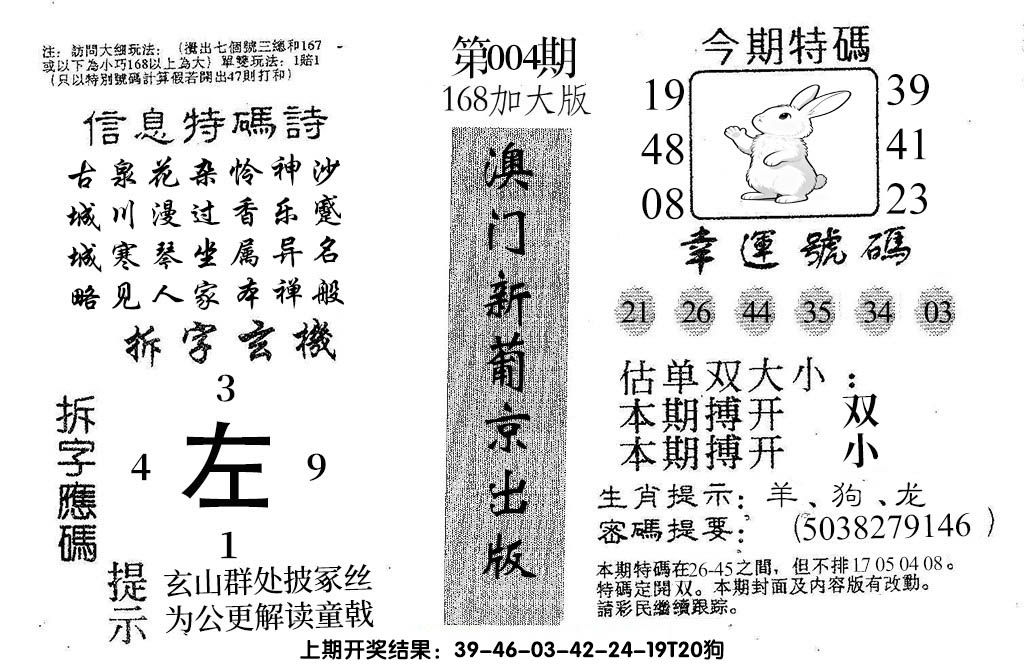 注：訪問大細玩法：（攪出七個號三總和167
或以下為小巧168以上為大）單雙玩法：1賠1
（只以特別號碼計算假若開出47則打和）
信息特碼詩
古泉花杂怜神沙
城川漫过香乐蹙
城寒琴坐属异名
略见人家本禅般
拆字玄機
拆字應碼
3
4 左 9
1
提示
玄山群处披冢丝
为公更解读童戟
第004期
168加大版
澳门新葡京出版
今期特碼
19 39
48 41
08 23
幸運號碼
21 26 44 35 34 03
估单双大小：
本期搏开 双
本期搏开 小
生肖提示：羊、狗、龙
密碼提要：（5038279146）
本期特碼在26-45之間，但不排17 05 04 08。
特碼定開双。本期封面及内容版有改動。
請彩民繼續跟踪。
上期开奖结果：39-46-03-42-24-19T20狗